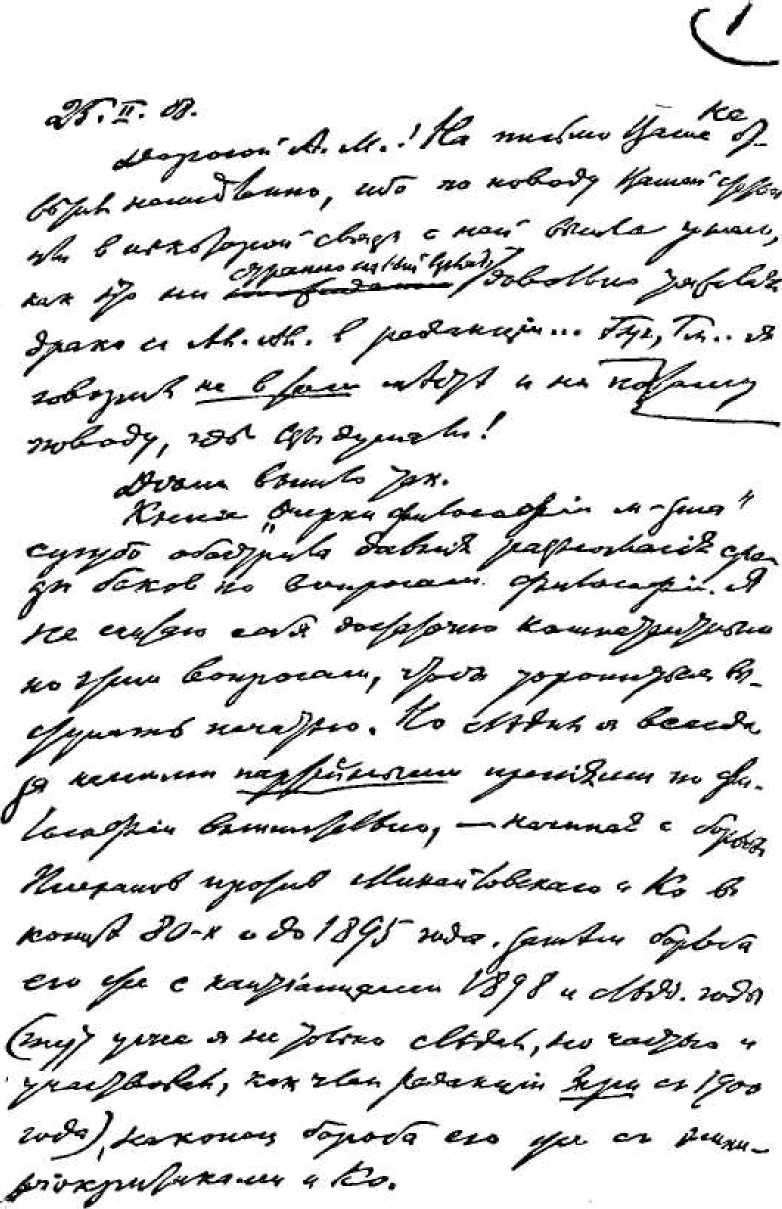 1
25. II. 08.
Дорогой А. М.! На письмо Ваше не от-
вѣтил немедленно, ибо по поводу Вашей статьи
или в некоторой связи с ней вышла у нас,
как это ни странно на первый взгляд, довольно
драка с Ал. Ал. в редакціи... Гм, Гм... я
говорил не в том мѣстѣ и не по тому
поводу, гдѣ Вы думали!
Дело вышло так.
Книга „Очерки философіи м-зма"
сугубо обострила давнія разногласія сре-
ди беков по вопросам философіи. Я
не считаю себя достаточно компетентным
по этим вопросам, чтобы торопиться вы-
ступать печатно. Но слѣдил я всегда
за нашими партійными преніями по фи-
лософіи внимательно, — начиная с борьбы
Плеханов против Михайловскаго и Ко в
концѣ 80-х и до 1895 года. Затем борьба
его же с кантіанцами 1898 и слѣд. годы
(тут уже я не только слѣдил, но частью и
участвовал, как член редакціи Зари съ 1900
года), наконец борьба его же съ эмпи-
ріокритиками и Ко.